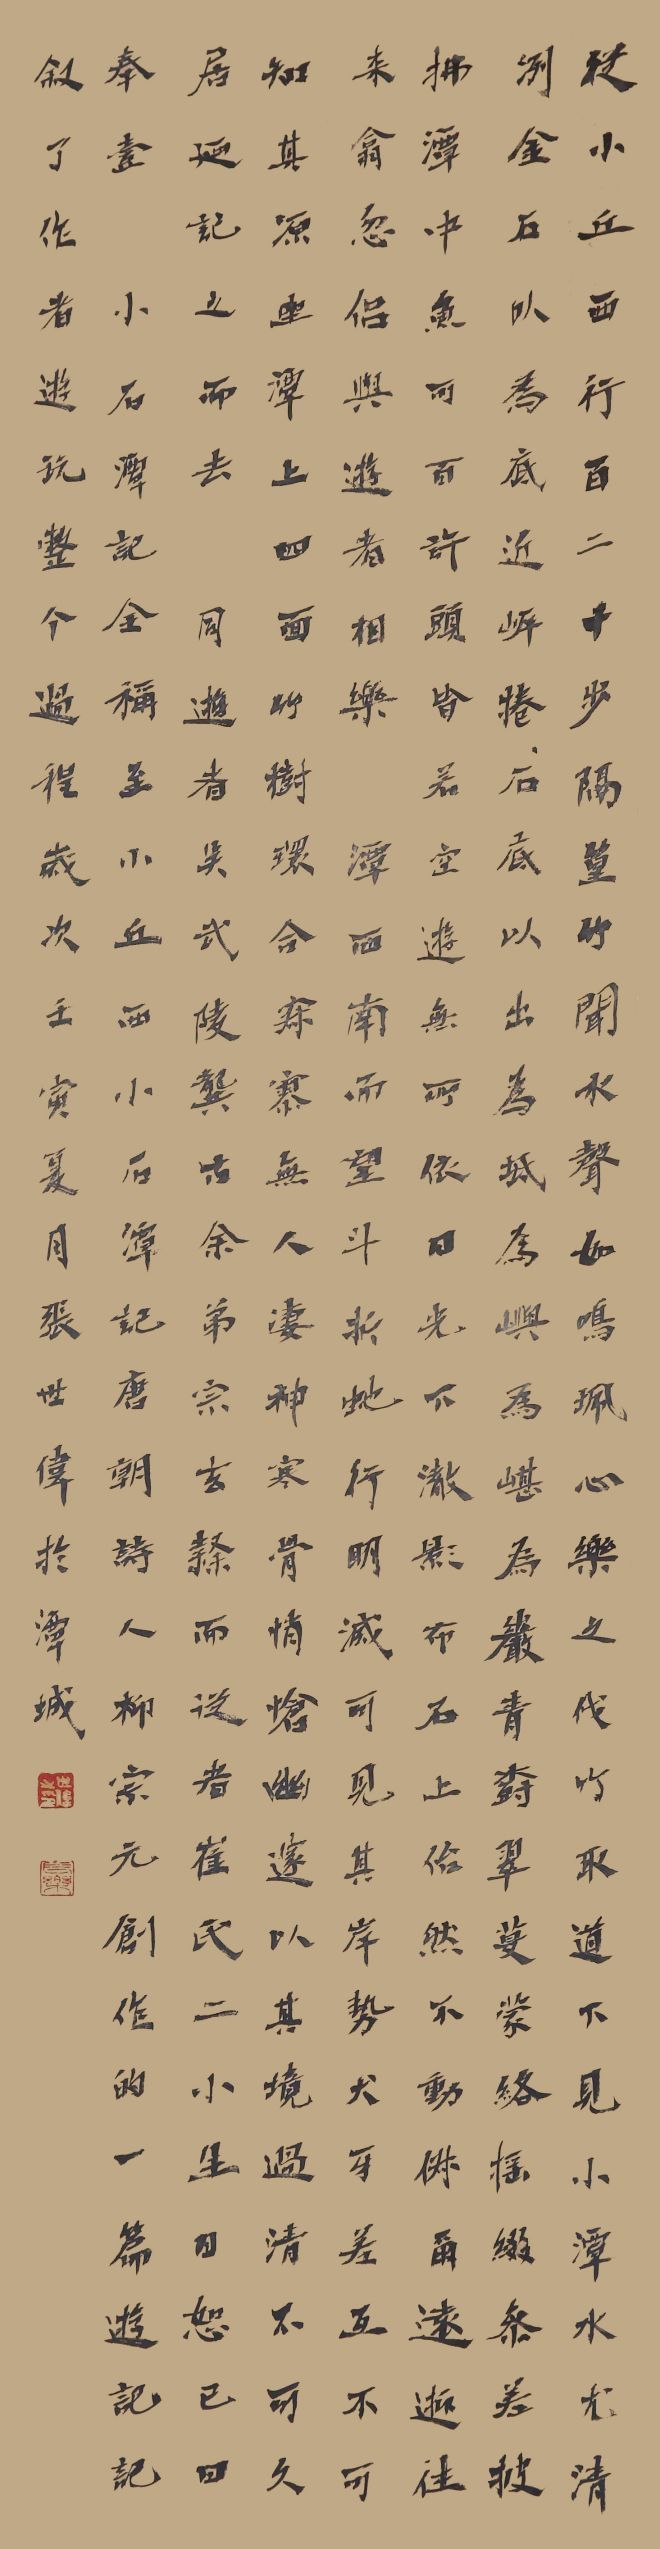 從小丘西行百二十步隔篁竹聞水聲如鳴珮心樂之伐竹取道下見小潭水尤清
洌金石以為底近岸捲石底以出為坻為嶼為嵁為巖青樹翠蔓蒙絡搖綴參差披
拂潭中魚可百許頭皆若空遊無所依日光下澈影布石上佁然不動俶爾遠逝往
來翕忽侶與遊者相樂潭西南而望斗折蛇行明滅可見其岸勢犬牙差互不可
知其源坐潭上四面竹樹環合寂寥無人淒神寒骨悄愴幽邃以其境過清不可久
居廼記之而去同遊者吳武陵龔古余弟宗玄隸而從者崔氏二小生曰恕己曰
奉壹小石潭記全稱至小丘西小石潭記唐朝詩人柳宗元創作的一篇遊記記
叙了作者遊玩整个過程歲次壬寅夏月張世偉於潭城